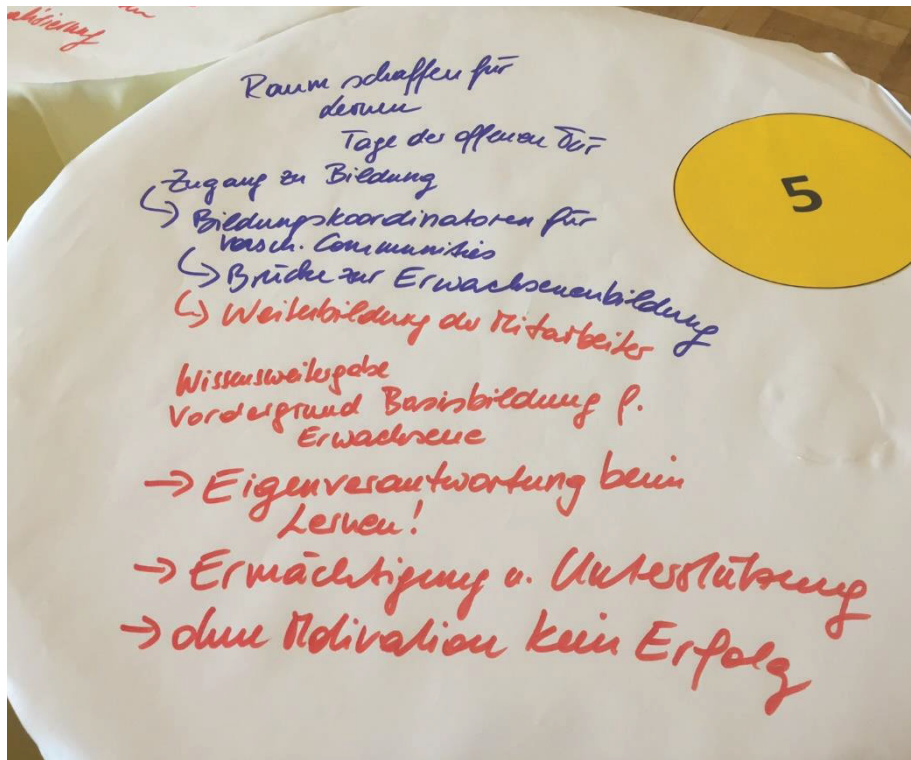 alisierung
Raum schaffen für
Lernen
Tage der offenen Tür
5
Zugang zu Bildung
↳ Bildungskoordinatoren für
versch. Communities
↳ Brücke zur Erwachsenenbildung
↳ Weiterbildung der Mitarbeiter
Wissensweitergabe
Vordergrund Basisbildung f.
Erwachsene
→ Eigenverantwortung beim
Lernen!
→ Ermächtigung u. Unterstützung
→ ohne Motivation kein Erfolg